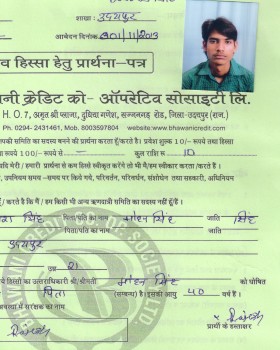 शाखा उदयपुर
आवेदन दिनांक 30/11/2013
व हिस्सा हेतु प्रार्थना-पत्र
नी क्रेडिट को- ऑपरेटिव सोसाइटी लि.
H. O. 7, अमृत श्री प्लाजा, दुधिया गणेश, सज्जनगढ़ रोड, जिला-उदयपुर (राज.)
Ph. 0294-2431461, Mob. 8003597804 website:www.bhawsnicredit.com
समिति का सदस्य बनने की प्रार्थना करता हूँ/करते है। प्रवेश शुल्क 10/- रूपये तथा हिस्सा
रूपये 100/- से कुल राशि रू 10
मेरी / हमारी प्रार्थना से कम हिस्से स्वीकृत करेंगे तो भी मैं/हम स्वीकार करता/करते है।
उपनियम समय -समय पर किये गये, परिवर्तन, परिवर्धन, संशोधन तथा सहकारी, अधिनियम
करते है कि मैं / हम किसी भी अन्य ऋणदात्री समिति का सदस्य नहीं हूँ।
सिंह पिता/पति का नाम मोहन सिंह जाति सिंह
पिता/पति का नाम जाति
उदयपुर
उम्र 21
हिस्सों का उत्तराधिकारी श्री./श्रीमती मोहन सिंह को घोषित
पिता (सम्बन्ध) है। इसकी आयु 40 वर्ष है।
के संरक्षक का नाम
प्रार्थी के हस्ताक्षर